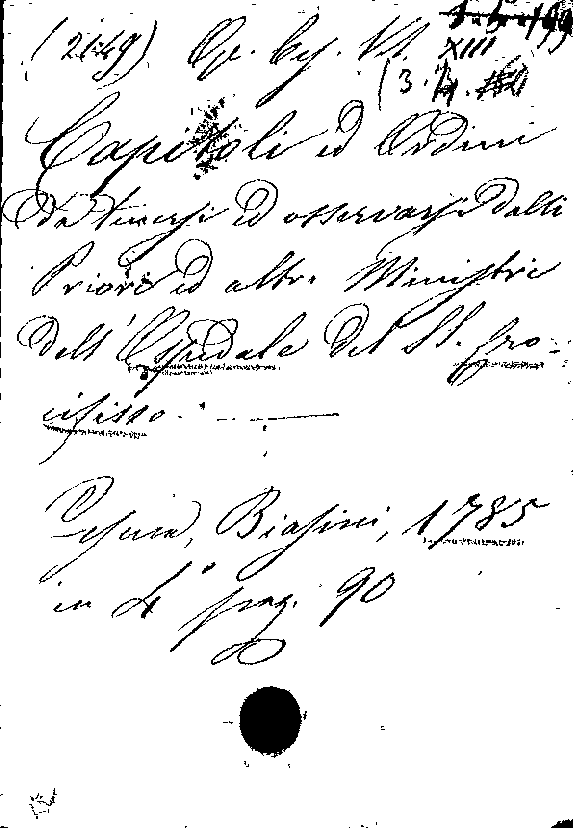 (2149) Op. Ces. Vt. XIII
(3.
Capitoli ed Ordini
Da tenersi ed osservarsi dalli
Priori ed altri Ministri
dell'Ospedale del SS. Cro-
cifisso.
Cesena, Biasini, 1785
in 4° pag. 90